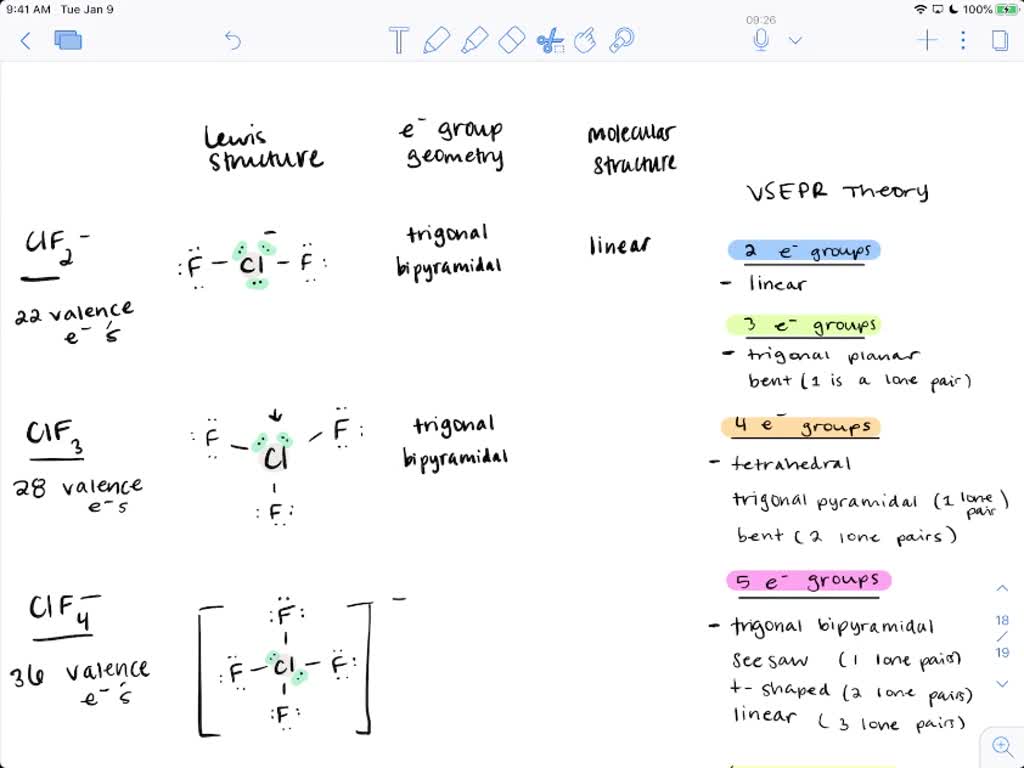 9:41 AM Tue Jan 9
100%
09:26
T
Lewis structure
e⁻ group geometry
molecular structure
VSEPR Theory
ClF₂⁻
:F - Cl - F: ⁻
trigonal bipyramidal
linear
22 valence e⁻'s
2 e⁻ groups
- linear
3 e⁻ groups
- trigonal planar
bent (1 is a lone pair)
ClF₃
F Cl F
F
trigonal bipyramidal
28 valence e⁻s
4 e⁻ groups
- tetrahedral
trigonal pyramidal (1 lone pair)
bent (2 lone pairs)
ClF₄⁻
F
F - Cl - F
F
⁻
36 valence e⁻'s
5 e⁻ groups
- trigonal bipyramidal
see saw (1 lone pairs)
t- shaped (2 lone pairs)
linear (3 lone pairs)
18
/
19